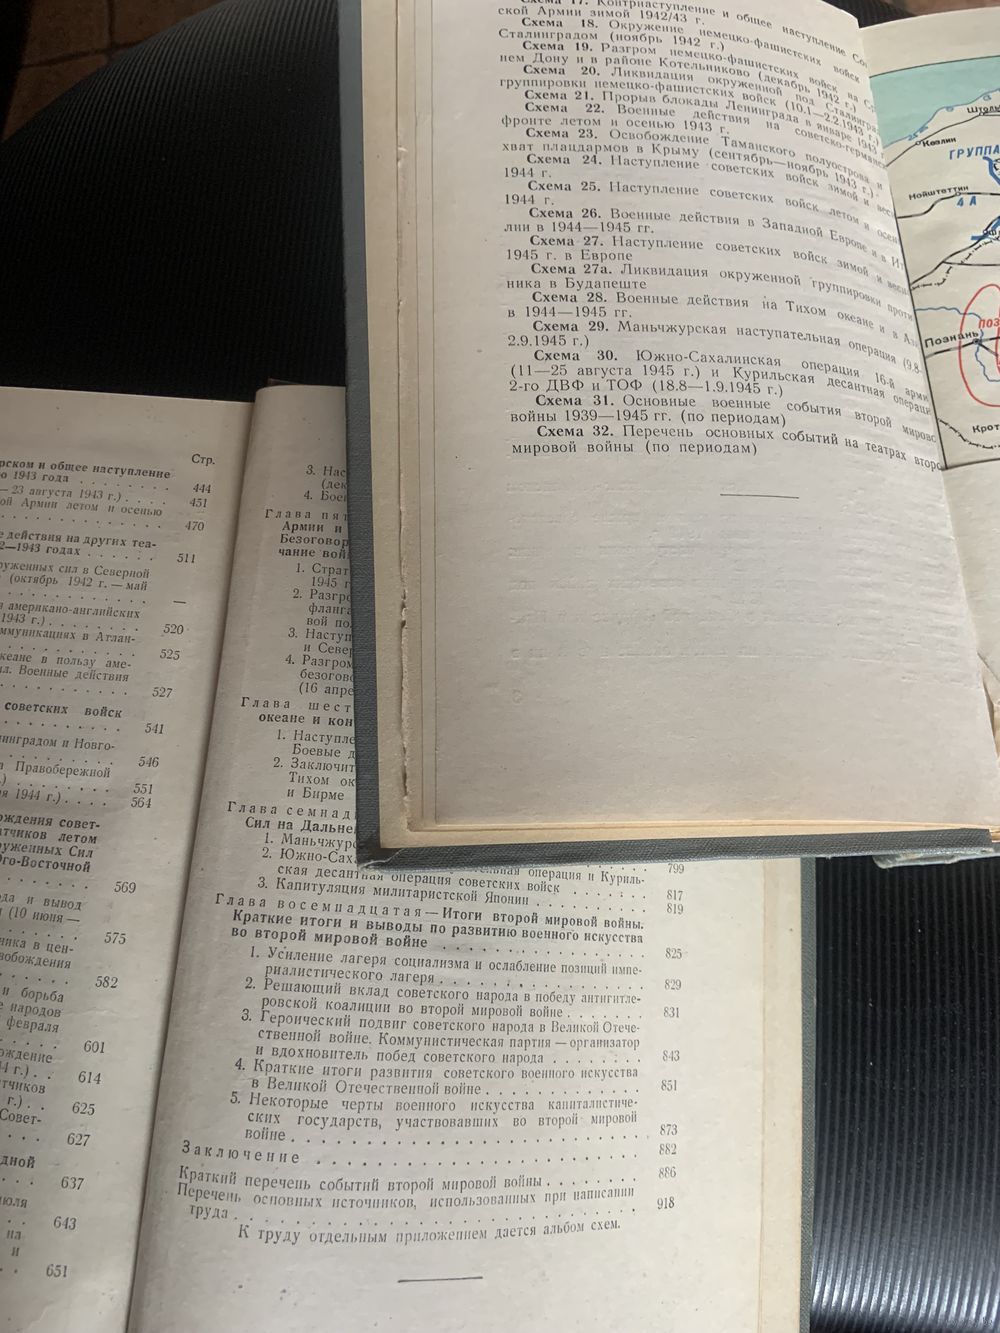 Схема 17. Контрнаступление и общее наступление
ской Армии зимой 1942/43 г.
Схема 18. Окружение немецко-фашистских войск
Сталинградом (ноябрь 1942 г.)
Схема 19. Разгром немецко-фашистских войск на
нем Дону и в районе Котельниково (декабрь 1942 г.)
Схема 20. Ликвидация окруженной под
группировки немецко-фашистских войск (10.1—2.2.1943 г.)
Схема 21. Прорыв блокады Ленинграда в январе 1943
Схема 22. Военные действия на
фронте летом и осенью 1943 г.
Схема 23. Освобождение Таманского полуострова и
хват плацдармов в Крыму (сентябрь—ноябрь 1943 г.)
Схема 24. Наступление советских войск зимой и
1944 г.
Схема 25. Наступление советских войск летом и
1944 г.
Схема 26. Военные действия в Западной Европе и в
лии в 1944—1945 гг.
Схема 27. Наступление советских войск зимой и
1945 г. в Европе
Схема 27а. Ликвидация окруженной группировки
ника в Будапеште
Схема 28. Военные действия на Тихом океане и в
в 1944—1945 гг.
Схема 29. Маньчжурская наступательная операция (9.8-
2.9.1945 г.)
Схема 30. Южно-Сахалинская операция 16-й
(11—25 августа 1945 г.) и Курильская десантная
2-го ДВФ и ТОФ (18.8—1.9.1945 г.)
Схема 31. Основные военные события второй
войны 1939—1945 гг. (по периодам)
Схема 32. Перечень основных событий на театрах
мировой войны (по периодам)
Кезлин
ГРУППА
Нойштеттин
4 А
ПОЗ
Познань
Крот
Стр.
рском и общее наступление
ю 1943 года 444
— 23 августа 1943 г.) 451
ой Армии летом и осенью
470
е действия на других теа-
2—1943 годах 511
руженных сил в Северной
(октябрь 1942 г. — май
—
и американо-английских
1943 г.) 520
ммуникациях в Атлан-
525
океане в пользу аме-
ил. Военные действия
527
советских войск
541
нинградом и Новго-
546
а Правобережной
551
я 1944 г.) 564
ождения совет-
атчиков летом
руженных Сил
Юго-Восточной
569
ода и вывод
(10 июня —
575
ника в цен-
вобождения
582
и борьба
е народов
февраля
601
ождение
4 г.) 614
тчиков
г.) 625
Совет-
627
дной
637
июля
643
на
и
651
3. Нас
(дек
4. Боев
Глава пят
Армии и
Безоговор
чание вой
1. Страт
1945 г
2. Разгро
фланга
вой по
3. Наступ
и Север
4. Разгром
безогово
(16 апре
Глава шест
океане и кон
1. Наступле
Боевые д
2. Заключит
Тихом ок
и Бирме
Глава семнад
Сил на Дальне
1. Маньчжурс
799
2. Южно-Саха операция и Куриль-
ская десантная операция советских войск 817
3. Капитуляция милитаристской Японии 819
Глава восемнадцатая — Итоги второй мировой войны.
Краткие итоги и выводы по развитию военного искусства
во второй мировой войне 825
1. Усиление лагеря социализма и ослабление позиций импе-
риалистического лагеря 829
2. Решающий вклад советского народа в победу антигитле-
ровской коалиции во второй мировой войне 831
3. Героический подвиг советского народа в Великой Отече-
ственной войне. Коммунистическая партия — организатор
и вдохновитель побед советского народа 843
4. Краткие итоги развития советского военного искусства
в Великой Отечественной войне 851
5. Некоторые черты военного искусства капиталистиче-
ских государств, участвовавших во второй мировой
войне 873
Заключение 882
Краткий перечень событий второй мировой войны 886
Перечень основных источников, использованных при написании
труда 918
К труду отдельным приложением дается альбом схем.